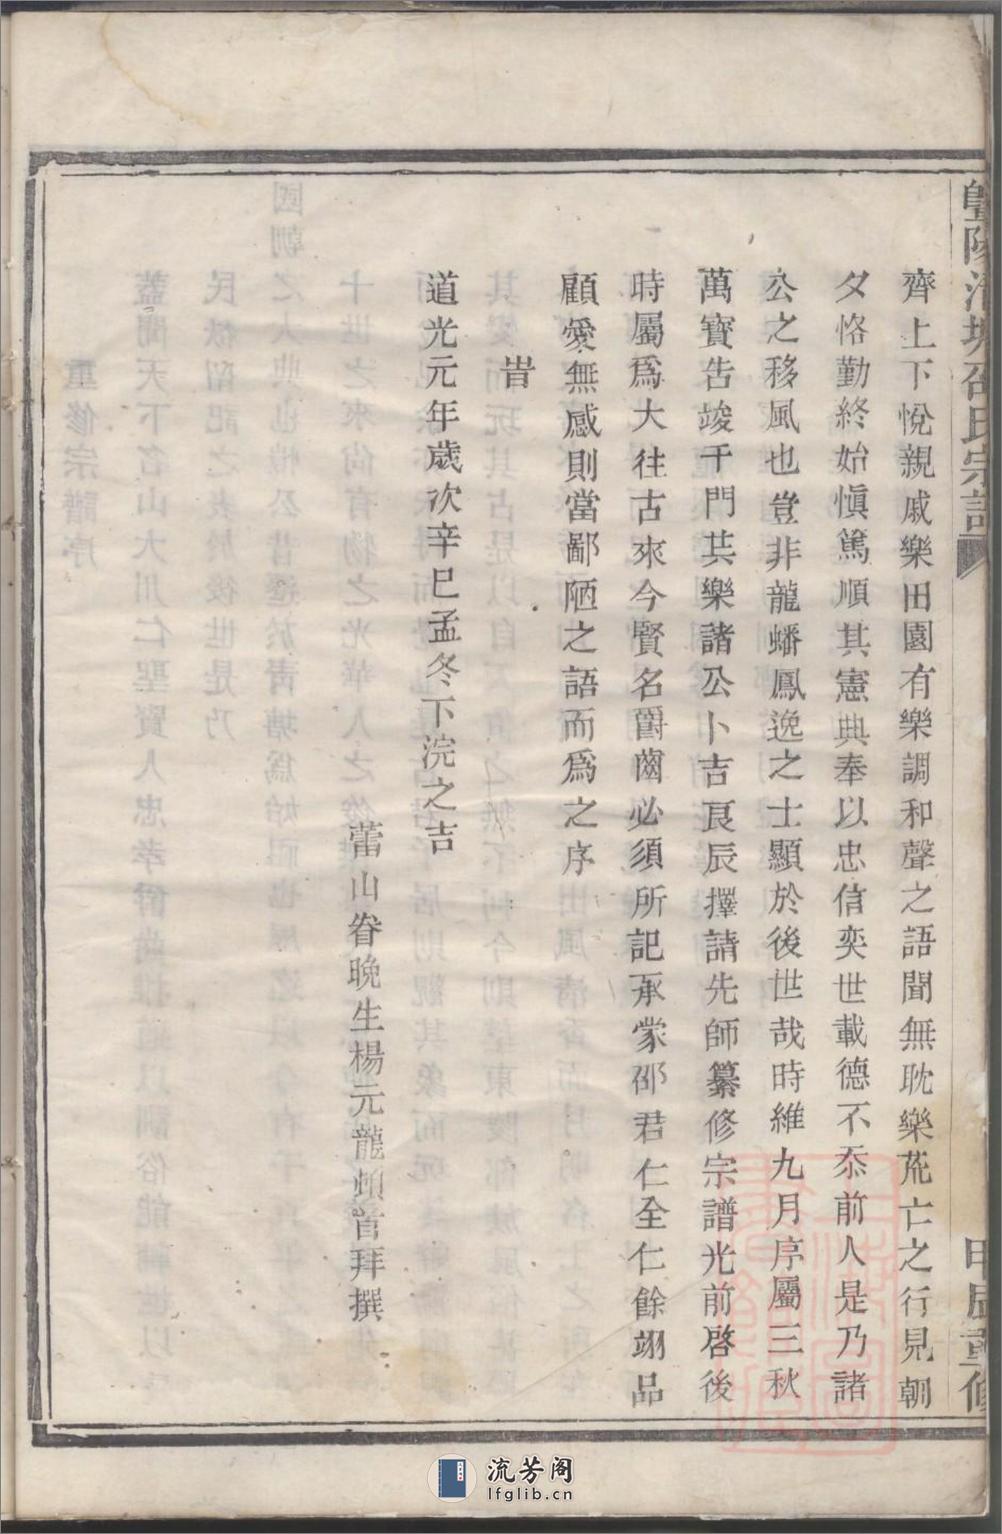 暨陽清塘邵氏宗譜
甲辰重修
齊上下悅親戚樂田園有樂調和聲之語聞無耽樂荒亡之行見朝
夕恪勤終始愼篤順其憲典奉以忠信奕世載德不忝前人是乃諸
公之移風也豈非龍蟠鳳逸之士顯於後世哉時維九月序屬三秋
萬寶告竣千門共樂諸公卜吉良辰擇請先師纂修宗譜光前啓後
時屬爲大往古來今賢名爵齒必須所記承蒙邵君仁全仁餘翊品
顧愛無感則當鄙陋之語而爲之序
旹
道光元年歲次辛巳孟冬下浣之吉
山眷晚生楊元龍頓首拜撰
流芳阁
lfglib.cn